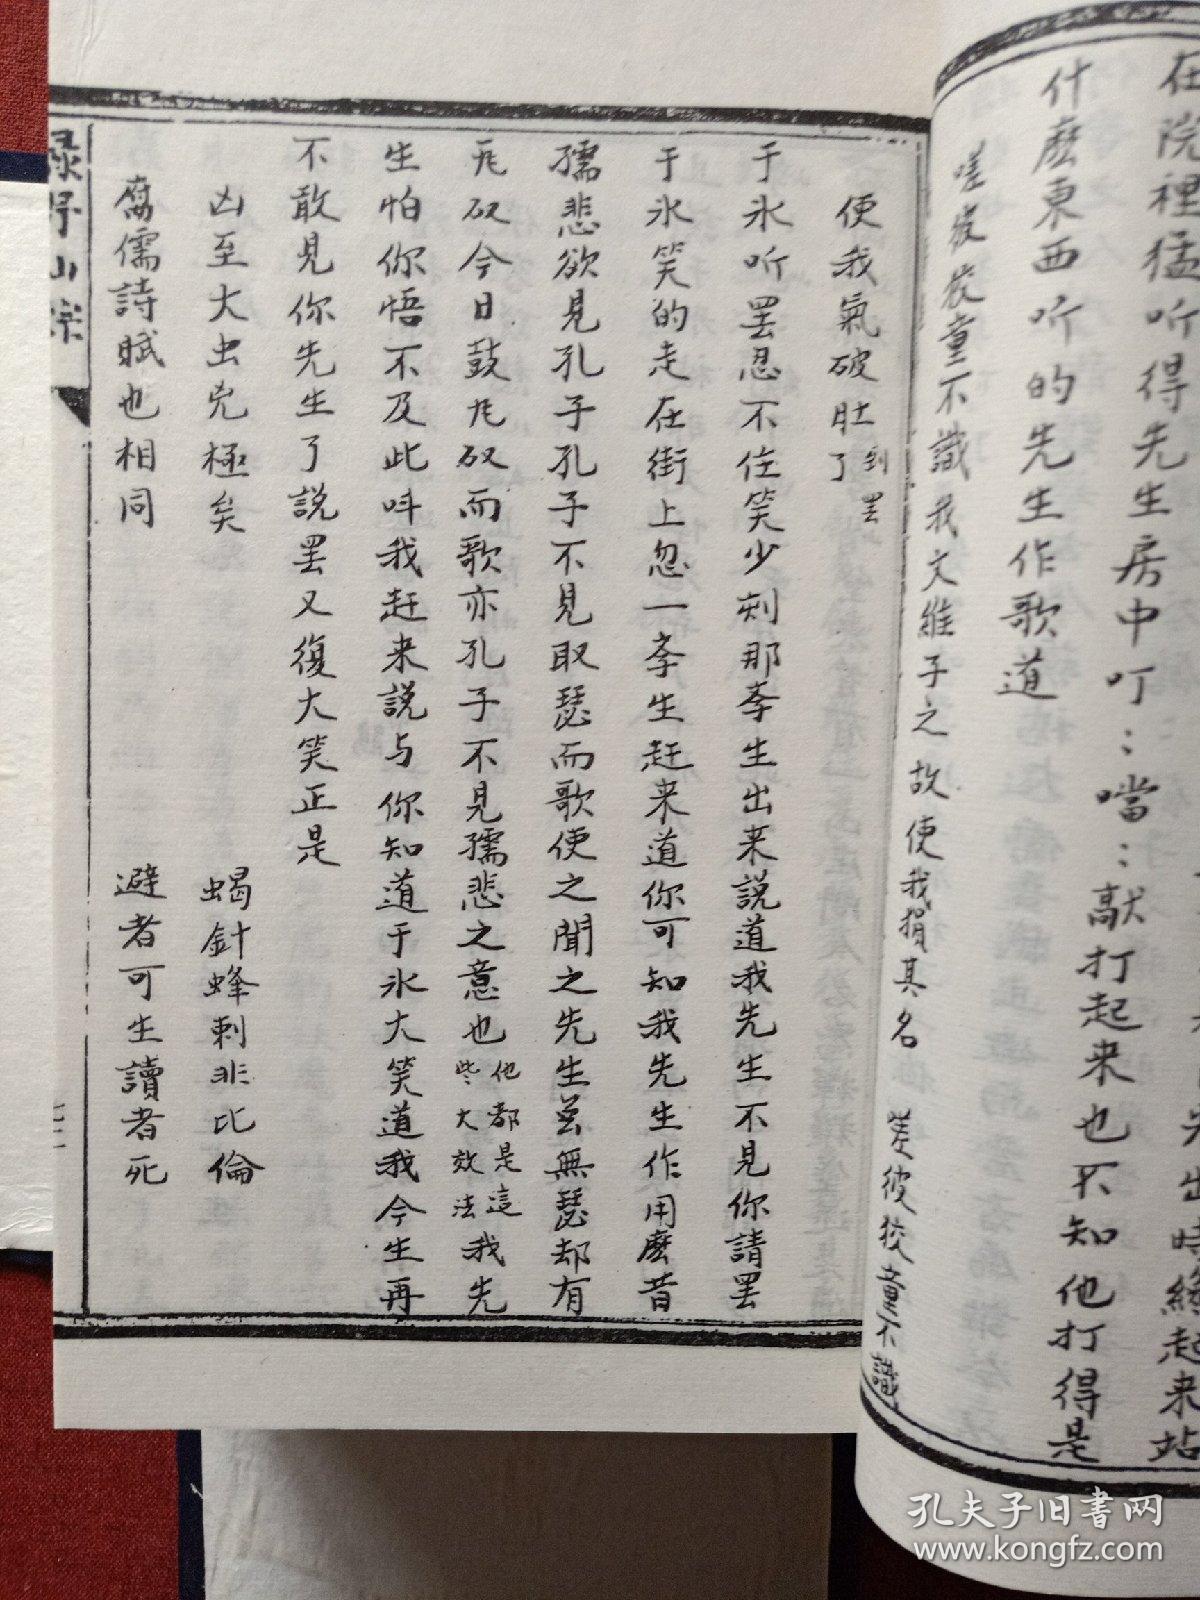 先出時緩起来站
在院裡猛听得先生房中叮:噹:献打起来也不知他打得是
什麽東西听的先生作歌道
嗟彼狡童不識我文維子之故使我損其名 嗟彼狡童不識
使我氣破肚了到罢
于氷听罢忍不住笑少刻那李生出来説道我先生不見你請罢
于氷笑的走在街上忽一李生赶来道你可知我先生作用麽昔
孺悲欲見孔子孔子不見取瑟而歌使之聞之先生並無瑟却有
瓦砇今日鼓瓦砇而歌亦孔子不見孺悲之意也他都是這些大效法我先
生怕你悟不及此呌我赶来説与你知道于氷大笑道我今生再
不敢見你先生了説罢又復大笑正是
凶至大虫兇極矣 蝎針蜂刺非比倫
腐儒詩賦也相同 避者可生讀者死
綠野仙踪
孔夫子旧书网
www.kongfz.com